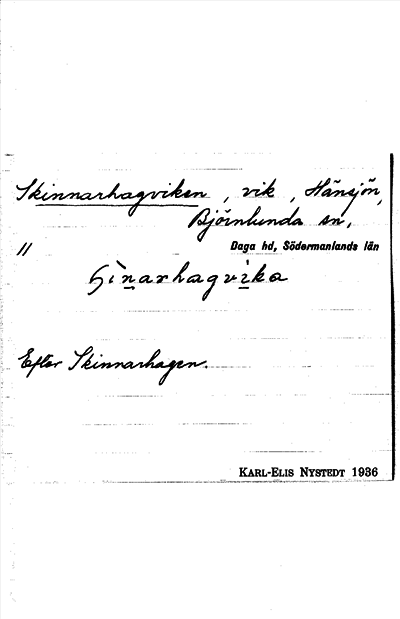 Skinnarhagviken, vik, Hänsjön,
Björnlunda sn,
11 Daga hd, Södermanlands län
Efter Skinnarhagen.
KARL-ELIS NYSTEDT 1936